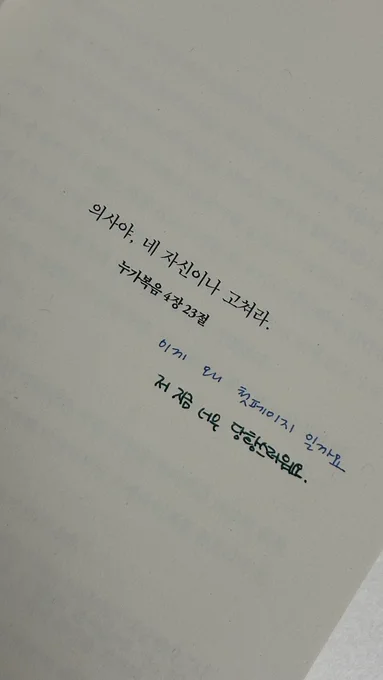 의사야, 네 자신이나 고쳐라.
누가복음 4장 23절
이게 왜 첫페이지 일까요
저 지금 너무 당황스러워요.